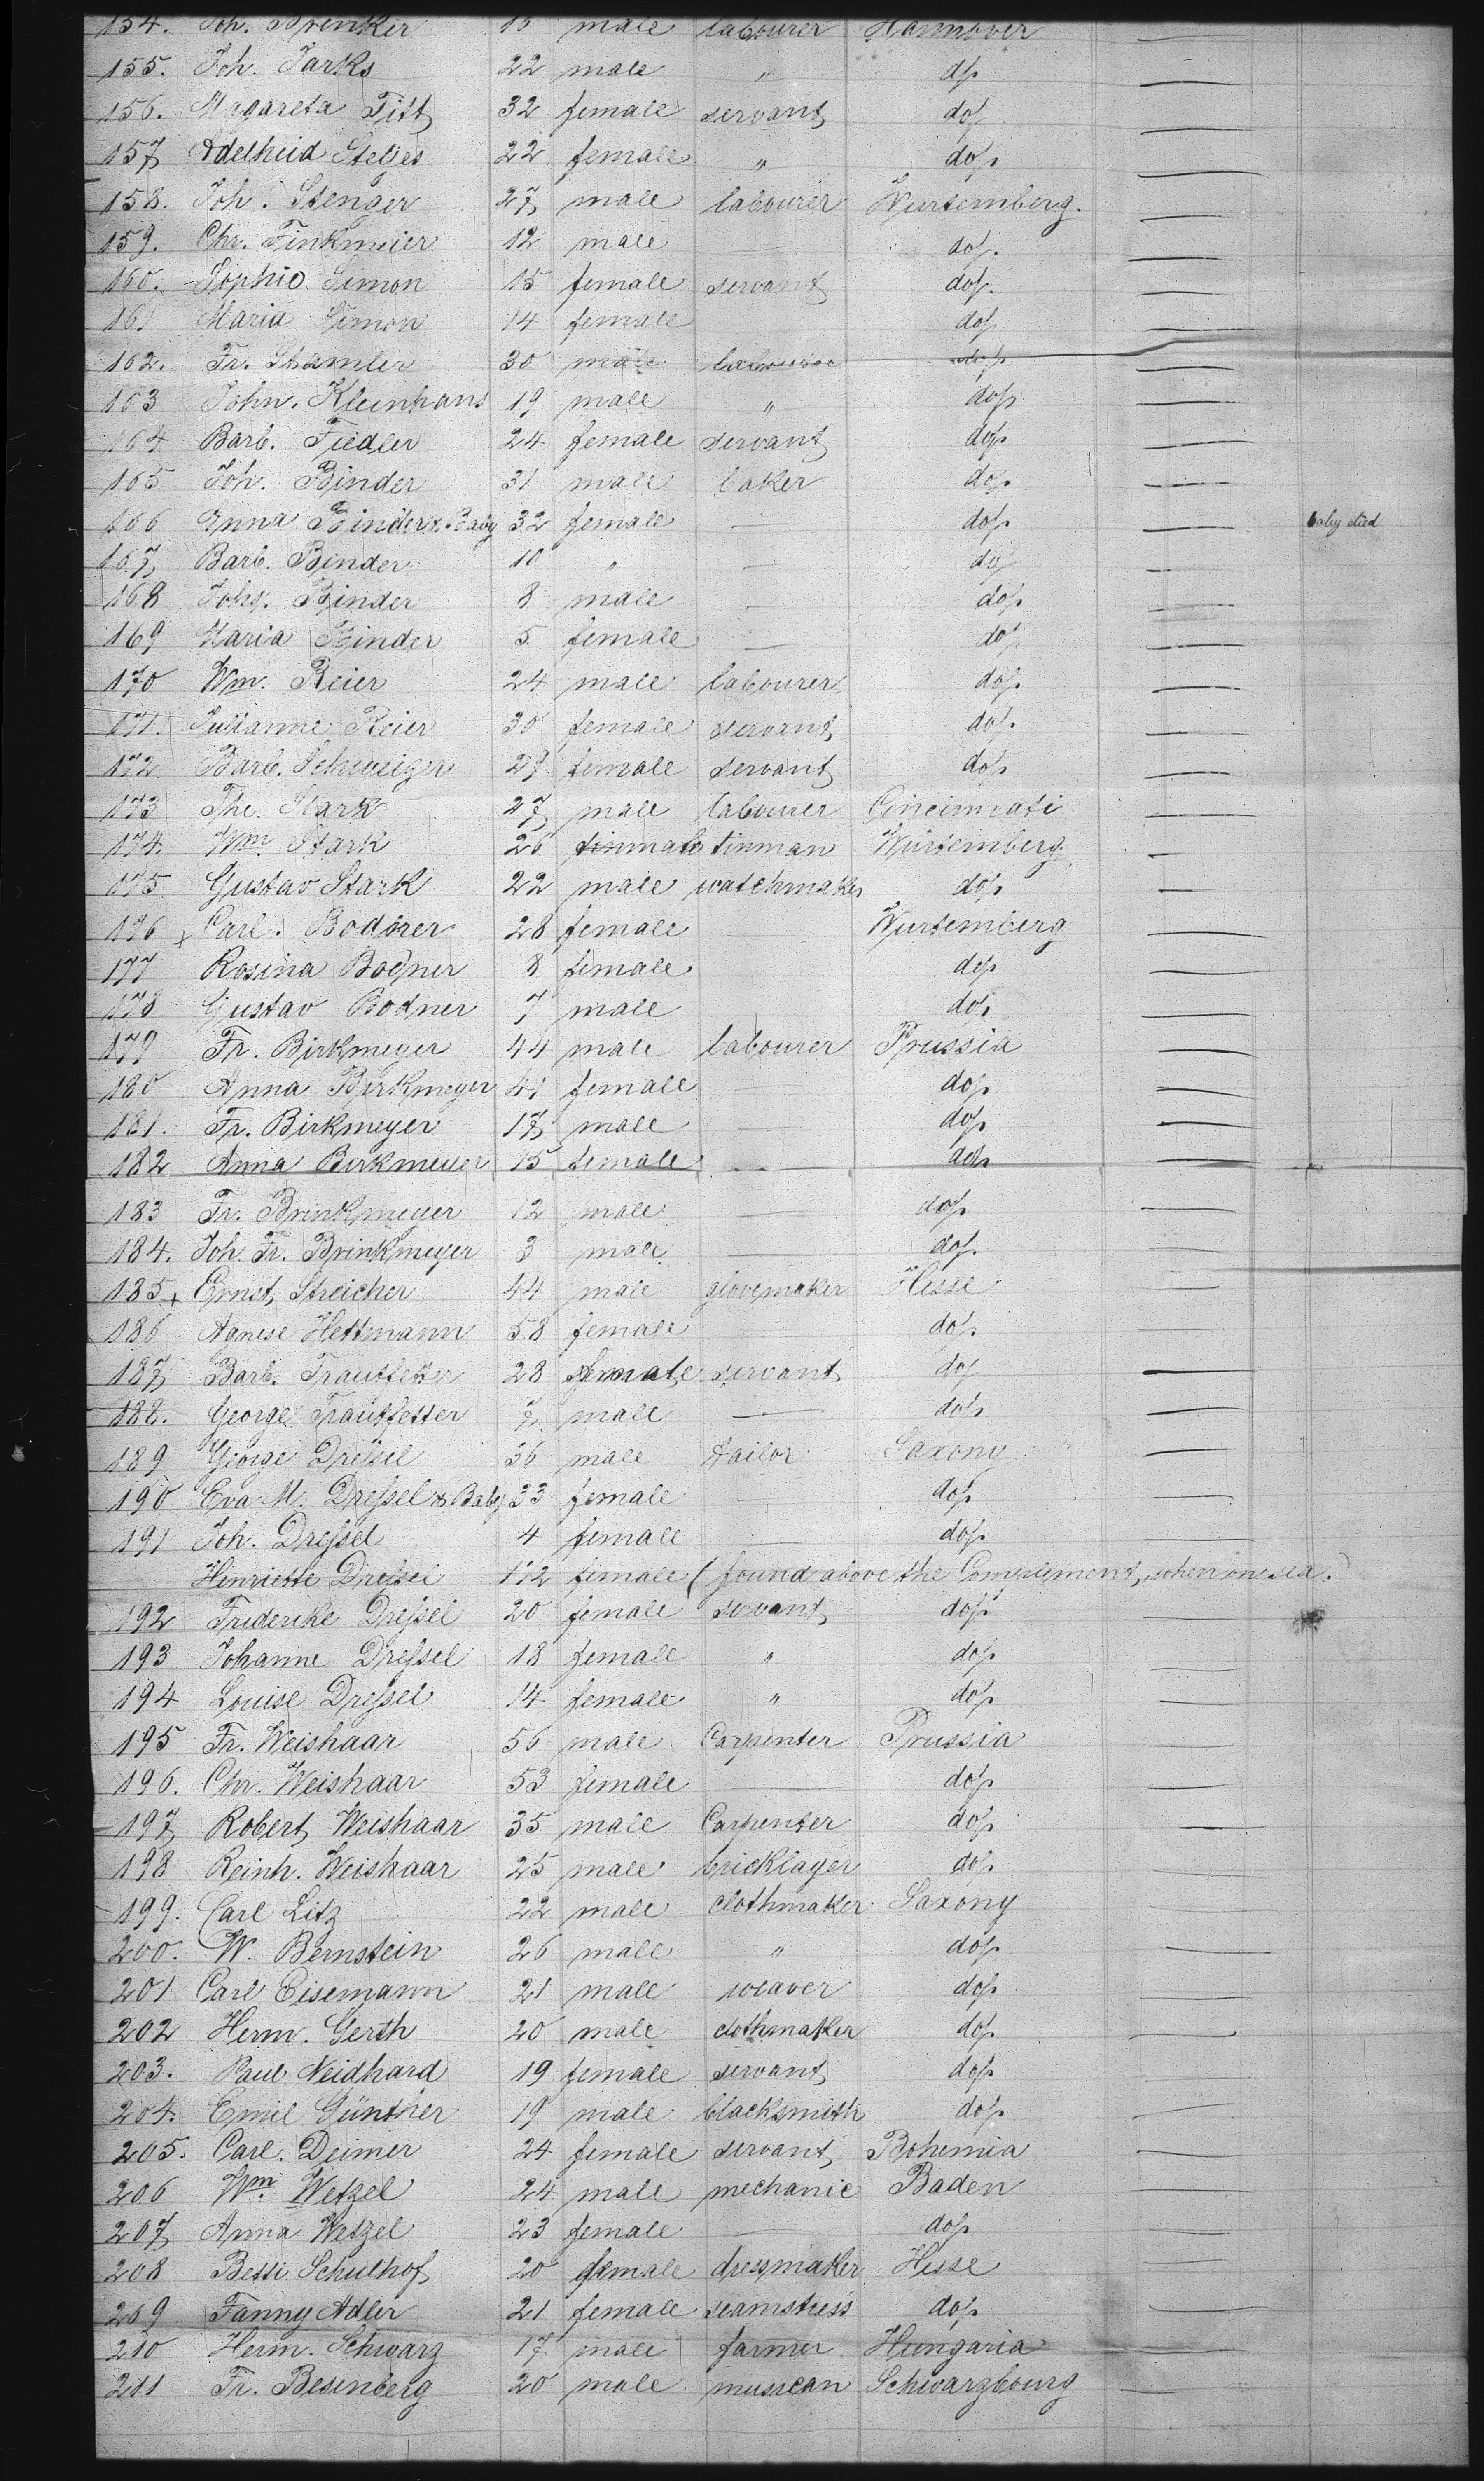 154. Joh. Brenker 15 male labourer Hannover
155. Joh. Jarks 22 male " do/.
156. Magareta Titt 32 female servant do/
157 Adelheid Steljes 22 female " do/.
158. Joh. Stenger 27 male labourer Wurtemberg.
159. Chr. Finkmeier 12 male — do/.
160. Sophie Simon 15 female servant do/.
161 Maria Simon 14 female do/
162. Fr. Shamler 30 male labourer do/.
163 John. Kleinhans 19 male " do/.
164 Barb. Fiedler 24 female servant do/.
165 Joh. Binder 31 male baker do/.
166 Anna Binder & Baby 32 female — do/. baby died
167 Barb. Binder 10 " — do/
168 Johs. Binder 8 male — do/.
169 Maria Binder 5 female — do/
170 Wm. Reier 24 male labourer do/.
171. Julianne Reier 30 female servant do/.
172 Barb. Schweiger 27 female servant do/.
173 The. Stark 27 male labourer Cincinnati
174. Wm Stark 26 tinmale tinman Würtemberg
175 Gustav Stark 22 male watchmaker do/.
176 + Carl. Bodner 28 female — Wurtemberg
177 Rosina Bodner 8 female do/.
178 Gustav Bodner 7 male do/.
179 Fr. Birkmeyer 44 male labourer Prussia
180 Anna Birkmeyer 41 female — do/.
181. Fr. Birkmeyer 17 male — do/.
182 Anna Birkmeyer 15 female — do/.
183 Fr. Brinkmeyer 12 male — do/.
184. Joh. Fr. Brinkmeyer 3 male — do/.
185 + Ernst Streicher 44 male glovemaker Hesse
186 Agnese Hettmann 58 female do/.
187 Barb. Trautfetter 28 female servant do/
188. George Trautfetter 7 male — do/.
189 George Dreſsel 36 male tailor Saxony
190 Eva M. Dreſsel & Baby 33 female — do/.
191 Joh. Dreſsel 4 female — do/.
Henriette Dreſsel 1 1/2 female (found above the Complement, when on sea.)
192 Friderike Dreſsel 20 female servant do/.
193 Johanne Dreſsel 18 female " do/.
194 Louise Dreſsel 14 female " do/.
195 Fr. Weishaar 56 male Carpenter Prussia
196. Chr. Weishaar 53 female — do/.
197 Robert Weishaar 35 male Carpenter do/.
198 Reinh. Weishaar 25 male bricklayer do/.
199. Carl Litz 22 male clothmaker Saxony
200. W. Bernstein 26 male " do/.
201 Carl Eisemann 21 male weaver do/.
202 Herm. Gerth 20 male clothmaker do/.
203. Paul Neidhard 19 female servant do/.
204. Emil Günther 19 male blacksmith do/.
205. Carl. Deimer 24 female servant Bohemia
206 Wm. Wetzel 24 male mechanic Baden
207 Anna Wetzel 23 female — do/.
208 Betti Schulhof 20 female dressmaker Hesse
209 Fanny Adler 21 female seamstress do/.
210 Herm. Schwarz 17 male farmer Hungaria
211 Fr. Besenberg 20 male musican Schwarzbourg